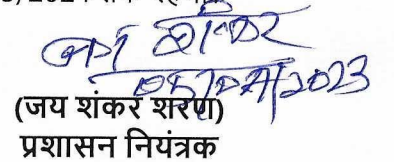 जय शंकर
05/07/2023
(जय शंकर शरण)
प्रशासन नियंत्रक